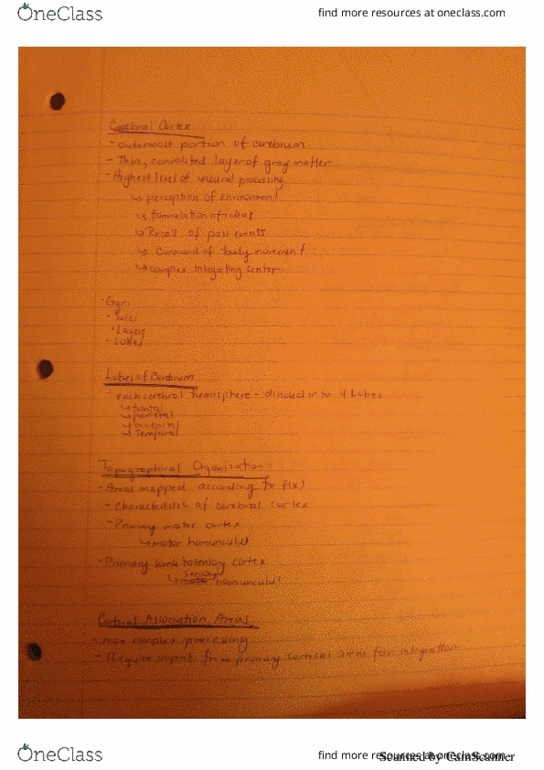 OneClass
find more resources at oneclass.com
Cerebral Cortex
- outermost portion of cerebrum
- Thin, convoluted layer of gray matter
- Highest level of neural processing
↳ perception of environment
↳ formulation of ideas
↳ Recall of past events
↳ Command of body movement
↳ complex integrating center
· Gyri
· Sulci
· Layers
· Lobes
Lobes of Cerebrum
- each cerebral hemisphere - divided in to 4 Lobes
↳ frontal
↳ parietal
↳ occipital
↳ Temporal
Topographical Organization
- Areas mapped according to f(x)
- Characteristics of cerebral cortex
- Primary motor cortex
↳ motor homunculus
- Primary somatosensory cortex
sensory
↳ homunculus
Cortical Association Areas
- more complex processing
- Require input from primary cortical areas for integration
OneClass
find more resources at oneclass.com
Scanned by CamScanner